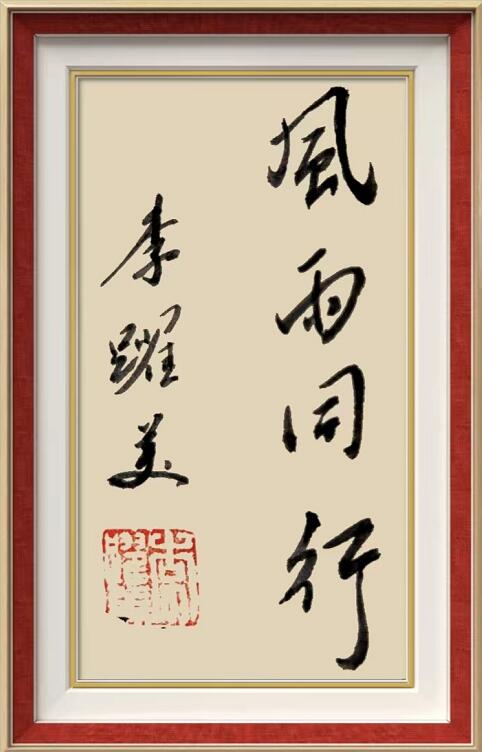 風雨同行
李躍美